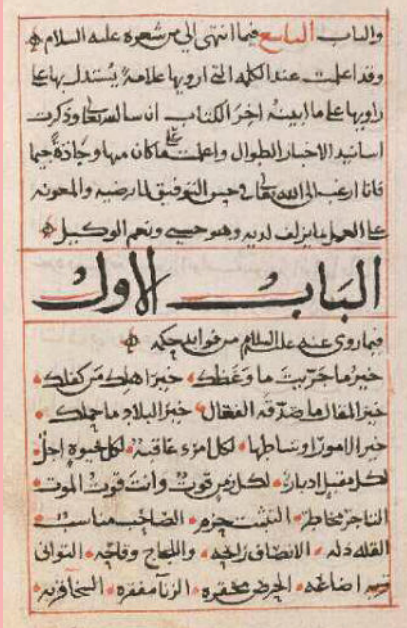 والباب التاسع فيما انتهى الي من شعره عليه السلام
وقد اعلمت عند الكلمة التي ارويها علامة يستدل بها علي
راويها علي ما ابينه اخر الكتاب ان شا الله تعالى وذكرت
اسانيد الاخبار الطوال واعلمت علي ما كان منها وجادة جيما
فانا ارغب الى الله تعالى في حسن التوفيق لما يرضيه والمعونة
علي العمل بما يزلف لديه وهو حسبي ونعم الوكيل
الباب الاول
فيما روي عنه عليه السلام من فوايد حكمه
خير ما جربت ما وعظك خير اهلك من كفاك
خير المقال ما صدقه الفعال خير البلاد ما حملك
خير الامور اوساطها لكل امرء عاقبة لكل حيوة اجل
لكل مقبل ادبار لكل زمن قوت وانت قوت الموت
التاجر مخاطر التثبت حزم الصاحب مناسب
القلة ذلة الانصاف راحة واللجاج وقاحة التواني
اضاعة الحرص محقرة الزنا مفقرة السخا قربة